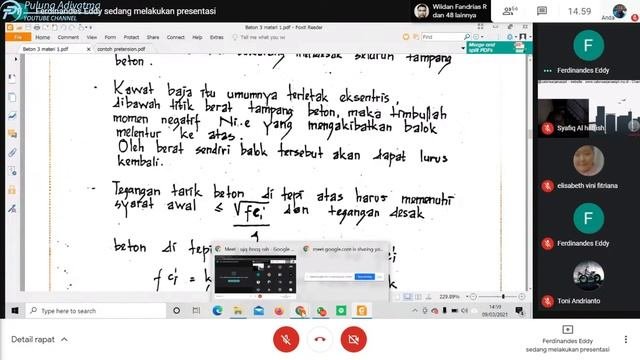 Pulung Adiyatma
YOUTUBE CHANNEL
Ferdinandes Eddy sedang melakukan presentasi
Wildan Fandrias R
dan 48 lainnya
14.59
Anda
Beton 3 materi 1.pdf - Foxit Reader
File
Home
View
Form
Protect
Share
Help
Extras
Tell me what you w
Beton 3 materi 1.pdf
contoh pretension.pdf
Merge and split PDFs
seluruh tampang
beton.
- Kawat baja itu umumnya terletak eksentris,
dibawah titik berat tampang beton, maka timbullah
momen negatif Ni.e yang mengakibatkan balok
melentur ke atas.
Oleh berat sendiri balok tersebut akan dapat lurus
kembali.
- Tegangan tarik beton di tepi atas harus memenuhi
syarat awal ≤ √fci' dan tegangan desak
4
beton di tepi
fci' = k
Meet - ujq hnoq rah - Google ...
meet.google.com is sharing yo...
229.89%
Type here to search
14:59
09/03/2021
Ferdinandes Eddy
Syafiq Al
elisabeth vini fitriana
Ferdinandes Eddy
Toni Andrianto
Detail rapat
Ferdinandes Eddy
sedang melakukan presentasi